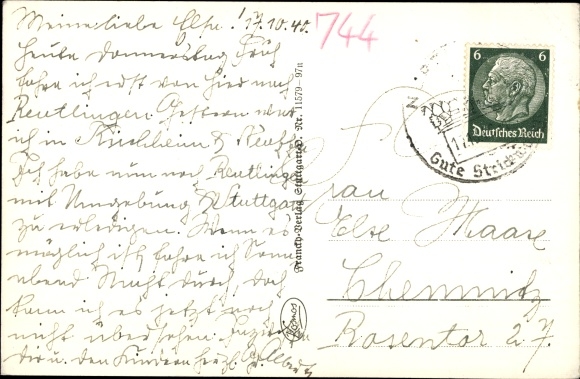 Meine liebe Else! 17.10.40.
Heute Donnerstag früh
fahre ich erst von hier nach
Reutlingen. Gestern war
ich in Kirchheim &
Ich habe nun noch Reutlingen
mit Umgebung & Stuttgart
zu erledigen. Wenn es
möglich ist, fahre ich Sonn-
abend Nacht durch, doch
kann ich es jetzt noch
nicht übersehen.
Dir u. den Kindern herzl.
744
Franckh-Verlag, Stuttgart-O. Nr. 11579—97n
Kosmos
6 6
Deutsches Reich
Gute
Frau
Else Maase
Chemnitz
Rosentor 2.